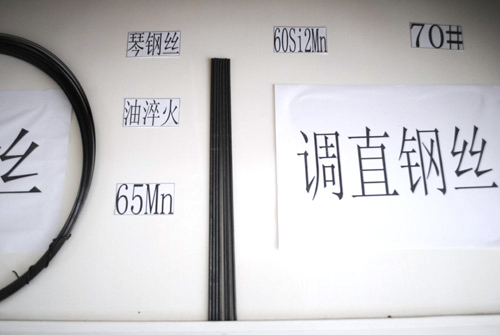 琴钢丝
60Si2Mn
70#
油淬火
调直钢丝
丝
65Mn